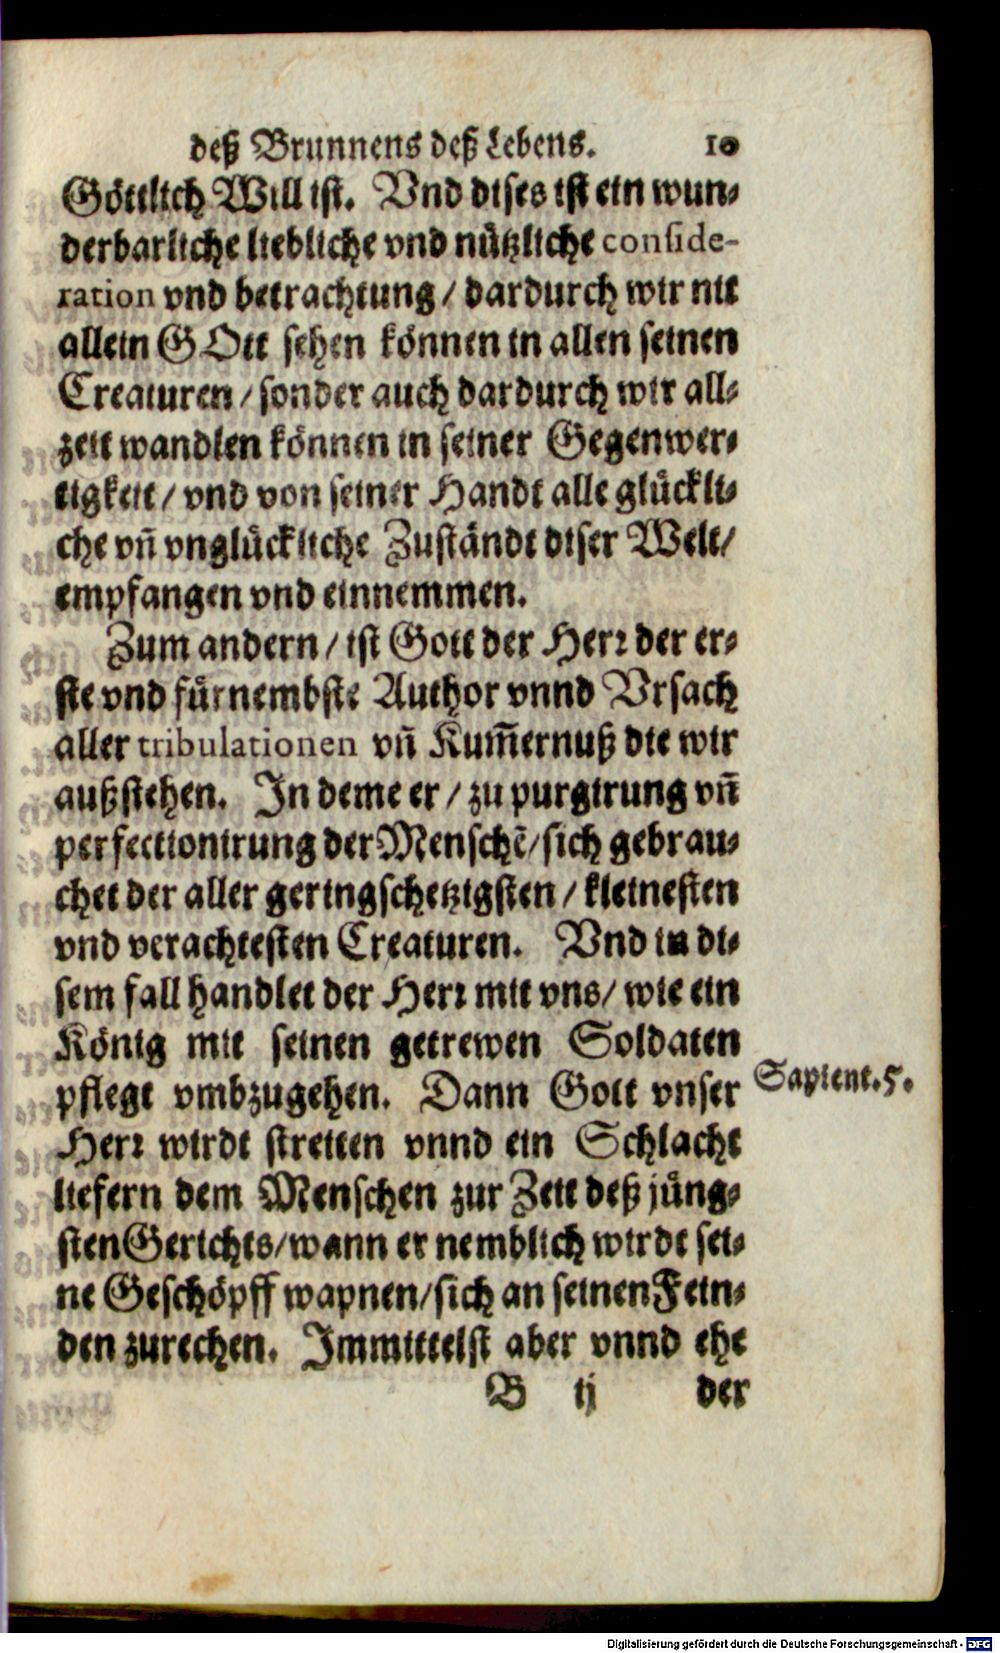 deß Brunnens deß Lebens. 10
Göttlich Will ist. Vnd dises ist ein wun-
derbarliche liebliche vnd nützliche conside-
ration vnd betrachtung / dardurch wir nit
allein GOtt sehen können in allen seinen
Creaturen / sonder auch dardurch wir all-
zeit wandlen können in seiner Gegenwer-
tigkeit / vnd von seiner Handt alle glückli-
che vñ vnglückliche Zuständt diser Welt /
empfangen vnd einnemmen.
Zum andern / ist Gott der Herr der er-
ste vnd fürnembste Author vnnd Vrsach
aller tribulationen vñ Kum̃ernuß die wir
außstehen. In deme er / zu purgirung vñ
perfectionirung der Menschẽ / sich gebrau-
chet der aller geringschetzigsten / kleinesten
vnd verachtesten Creaturen. Vnd in di-
sem fall handlet der Herr mit vns / wie ein
König mit seinen getrewen Soldaten
pflegt vmbzugehen. Dann Gott vnser
Sapient. 5.
Herr wirdt streitten vnnd ein Schlacht
liefern dem Menschen zur Zeit deß jüng-
sten Gerichts / wann er nemblich wirdt sei-
ne Geschöpff wapnen / sich an seinen Fein-
den zurechen. Immittelst aber vnnd ehe
B ij der
Digitalisierung gefördert durch die Deutsche Forschungsgemeinschaft - DFG